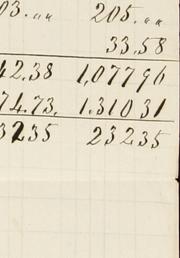 03.,, 205.,,
33,58
42,38 1,07796
74.73, 1.31031
3235 23235